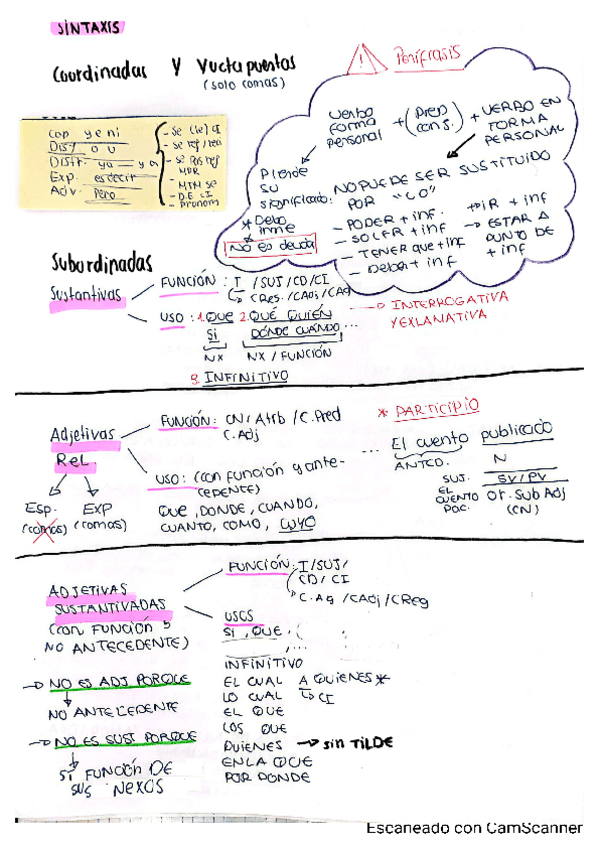 SINTAXIS
Coordinadas y Yuxtapuestas
(solo comas)
Perífrasis
cop y e ni
Disy o u
Distr. ya — ya
Exp. es decir
Adv. Pero
- se (le) CI
- se ref / reci
- se pas ref
- Pronom
verbo forma personal + (prep cons.) + VERBO EN FORMA PERSONAL
Pierde su significado:
* Debo irme
NO es deuda
NO PUEDE SER SUSTITUIDO
POR "LO"
- PODER + inf.
- SOLER + inf
- TENER que + inf
- Deber + inf
→ IR + inf
→ ESTAR A PUNTO DE + inf
Subordinadas
Sustantivas
FUNCIÓN: T / SUJ / CD / CI
CReg. / CAdj / CAg
USO: 1. QUE 2. QUÉ QUIÉN ...
SI DÓNDE CUÁNDO
NX NX / FUNCIÓN
3. INFINITIVO
INTERROGATIVA
Y EXLANATIVA
Adjetivas
Rel.
Esp. (comas)
EXP (comas)
FUNCIÓN: CN / Atrb / C. Pred
C. Adj
USO: (con función y ante-
cedente)
QUE, DONDE, CUANDO,
CUANTO, COMO, CUYO
* PARTICIPIO
... El cuento publicado
ANTCD. N
SUJ. SV/PV
EL CUENTO
Or. Sub Adj
(CN)
ADJETIVAS
SUSTANTIVADAS
(con FUNCIÓN y
NO ANTECEDENTE)
→ NO ES ADJ PORQUE
NO ANTECEDENTE
→ NO ES SUST PORQUE
SÍ FUNCIÓN DE
SUS NEXOS
FUNCIÓN: T / SUJ /
CD / CI
C. Ag / CAdj / CReg
USOS
SI, QUE, (
INFINITIVO
EL CUAL A QUIENES *
LO CUAL → CI
EL QUE
LOS QUE
QUIENES → sin TILDE
EN LA QUE
POR DONDE
Escaneado con CamScanner